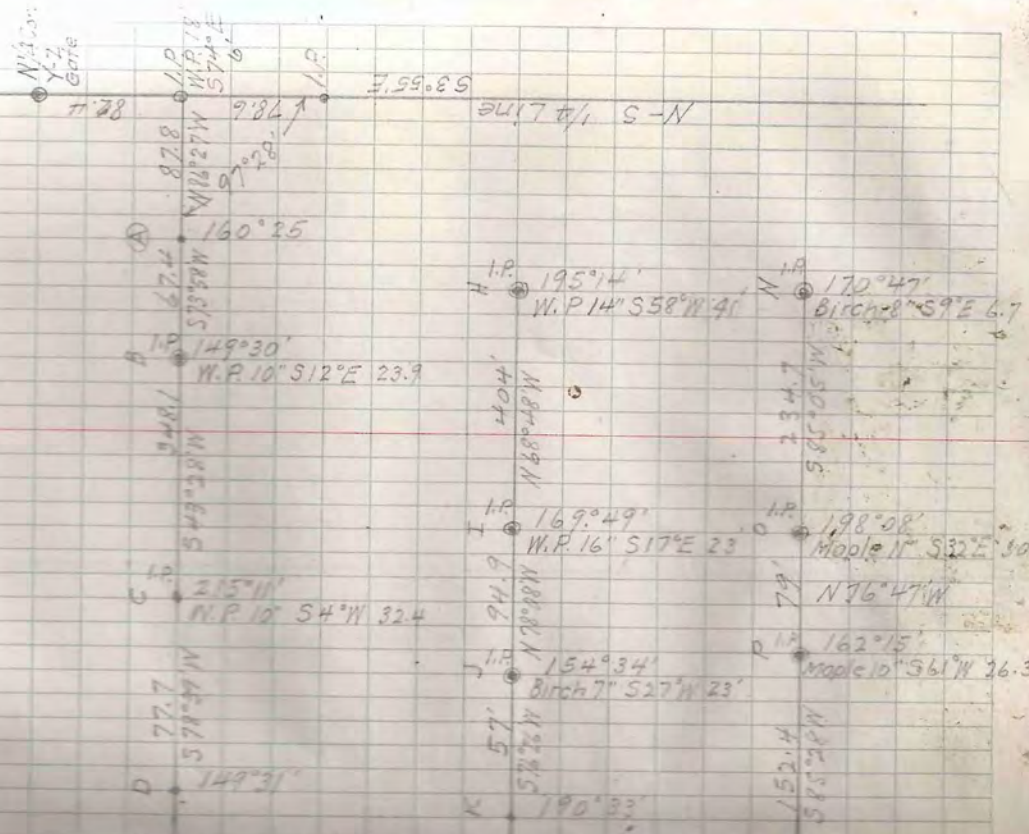 N¼ Cor.
Y-Z
Gate
82.4
I.P.
W.P. 18"
S74°E
6'
78.6
I.P.
S3°55'E
N-S 1/4 Line
87.8
N86°27'W
97°28'
A
160°25
67.4
S73°58'W
B
I.P.
149°30'
W.P. 10" S12°E 23.9
S43°28'W
C
I.P.
215°11'
W.P. 10" S4°W 32.4
77.7
S78°39'W
D
149°31'
H
I.P.
195°14'
W.P 14" S58°W 41'
404'
N68°48'W
I
I.P.
169°49'
W.P. 16" S17°E 23
94.9
J
I.P.
154°34'
Birch 7" S27°W 23'
57'
K
190°33'
N
I.P.
170°47'
Birch 8" S9°E 6.7
234.7
S85°05'W
O
I.P.
198°08'
Maple 11" S32°E
79'
N76°47'W
P
I.P.
162°15'
Maple 10" S61°W 26.3
152.4
S85°28'W